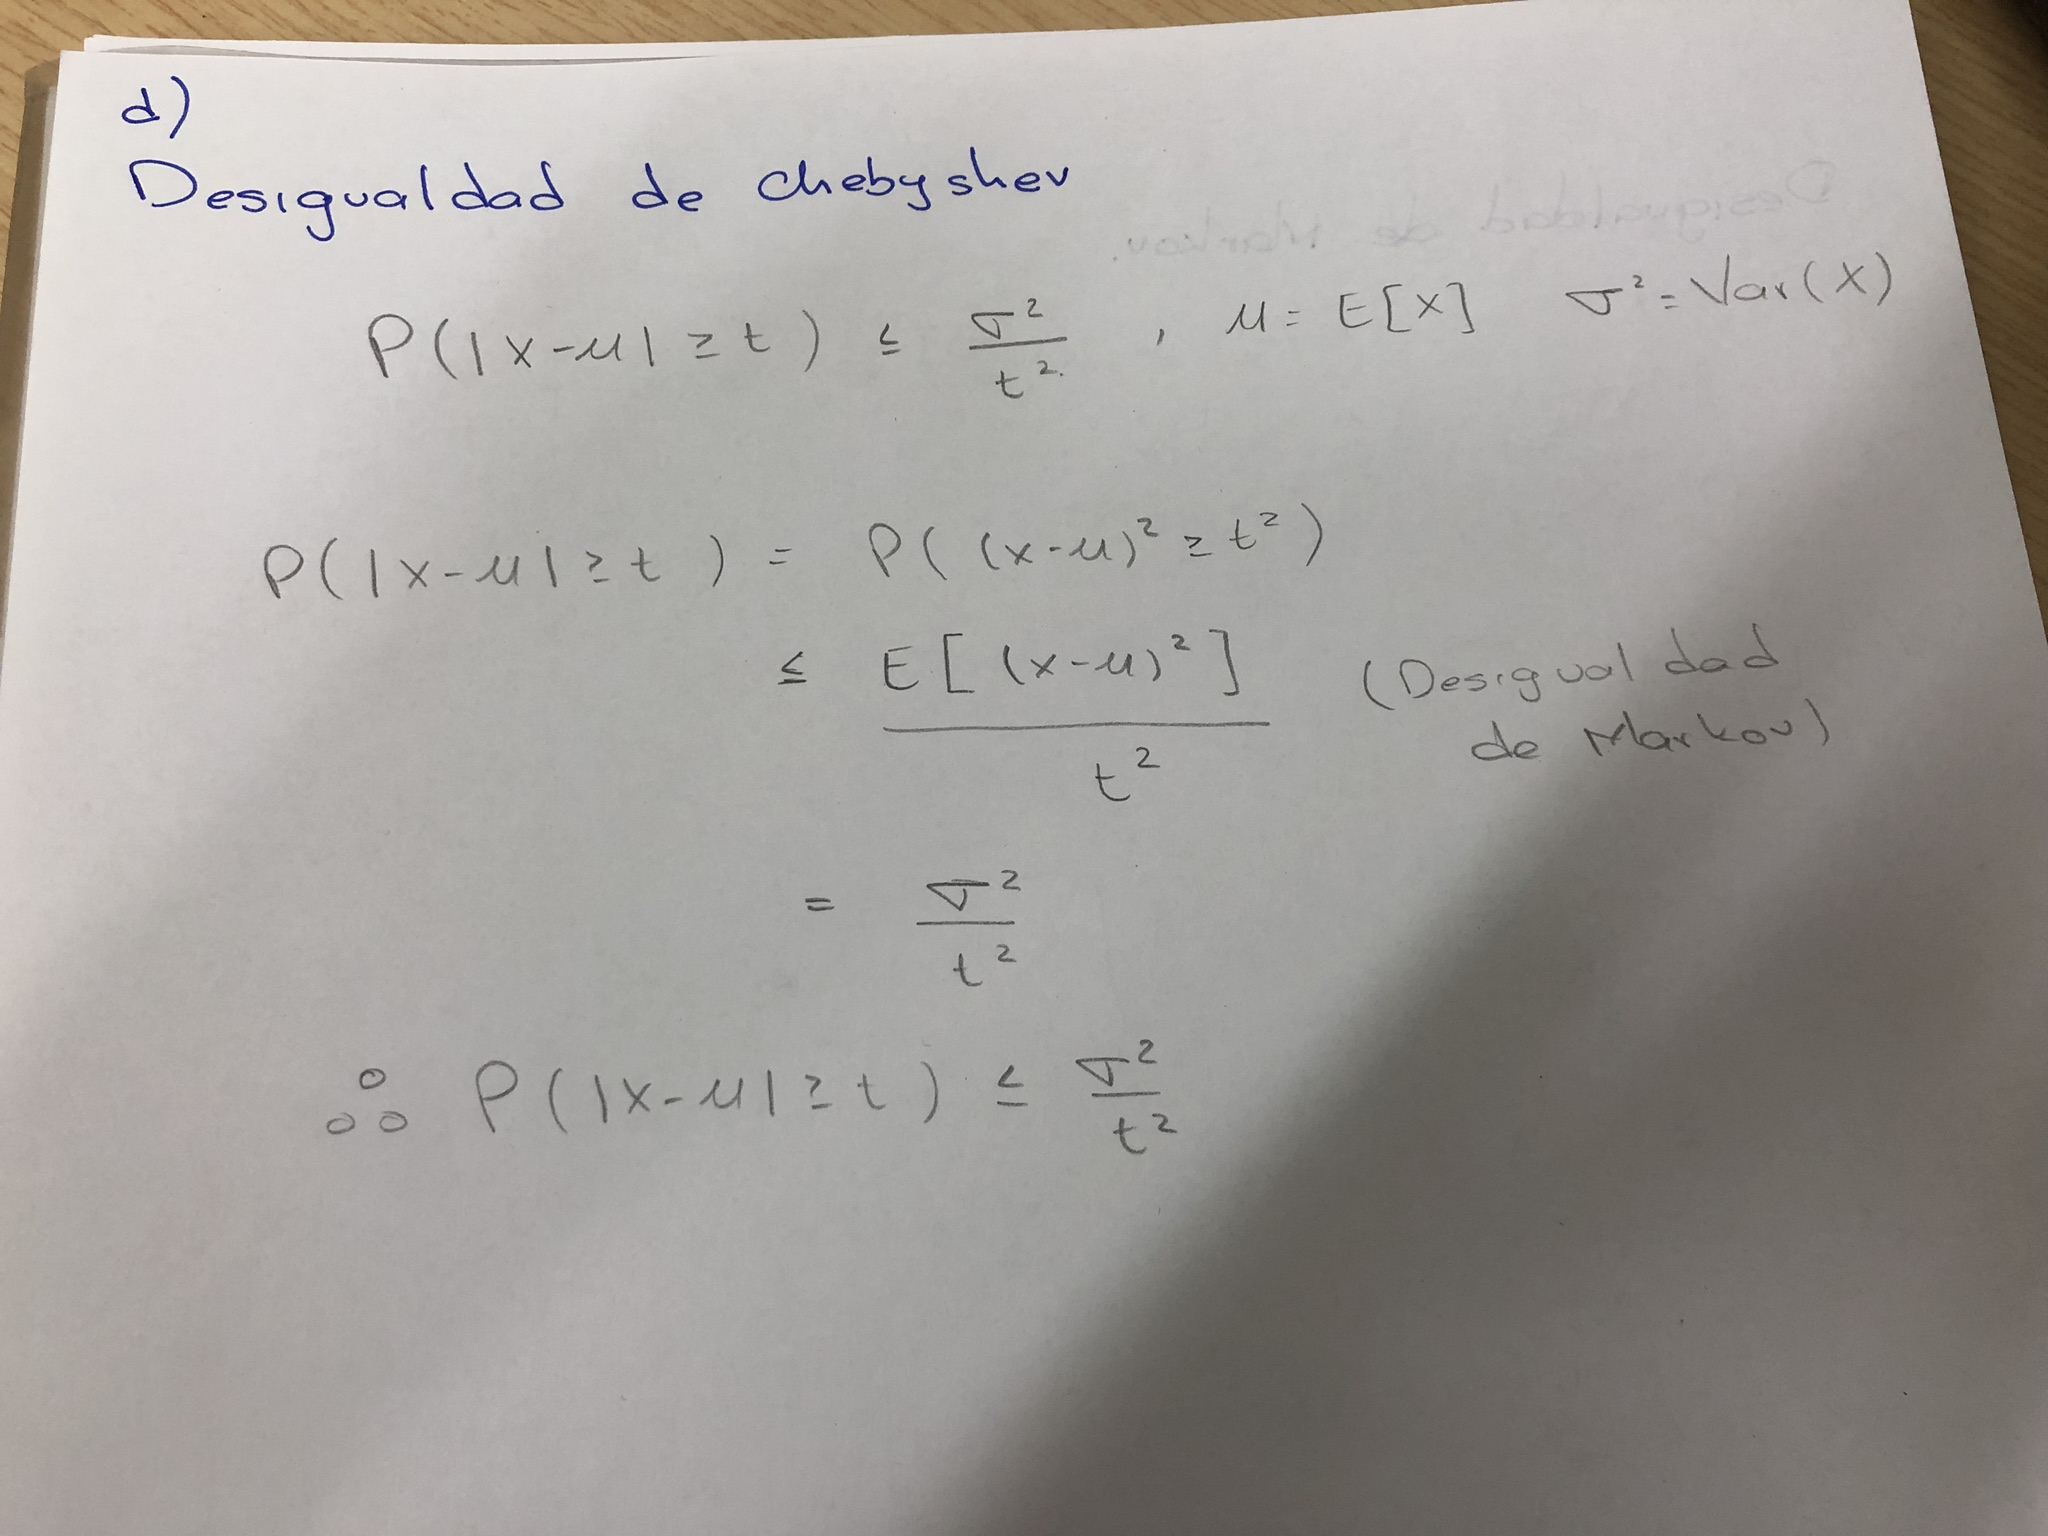 d)
Desigualdad de Chebyshev
Desigualdad de Markov.
P(|X-μ| ≥ t) ≤ σ²/t² , μ = E[X] σ² = Var(X)
P(|X-μ| ≥ t) = P((x-μ)² ≥ t²)
≤ E[(x-μ)²]/t² (Desigualdad
de Markov)
= σ²/t²
∴ P(|X-μ| ≥ t) ≤ σ²/t²